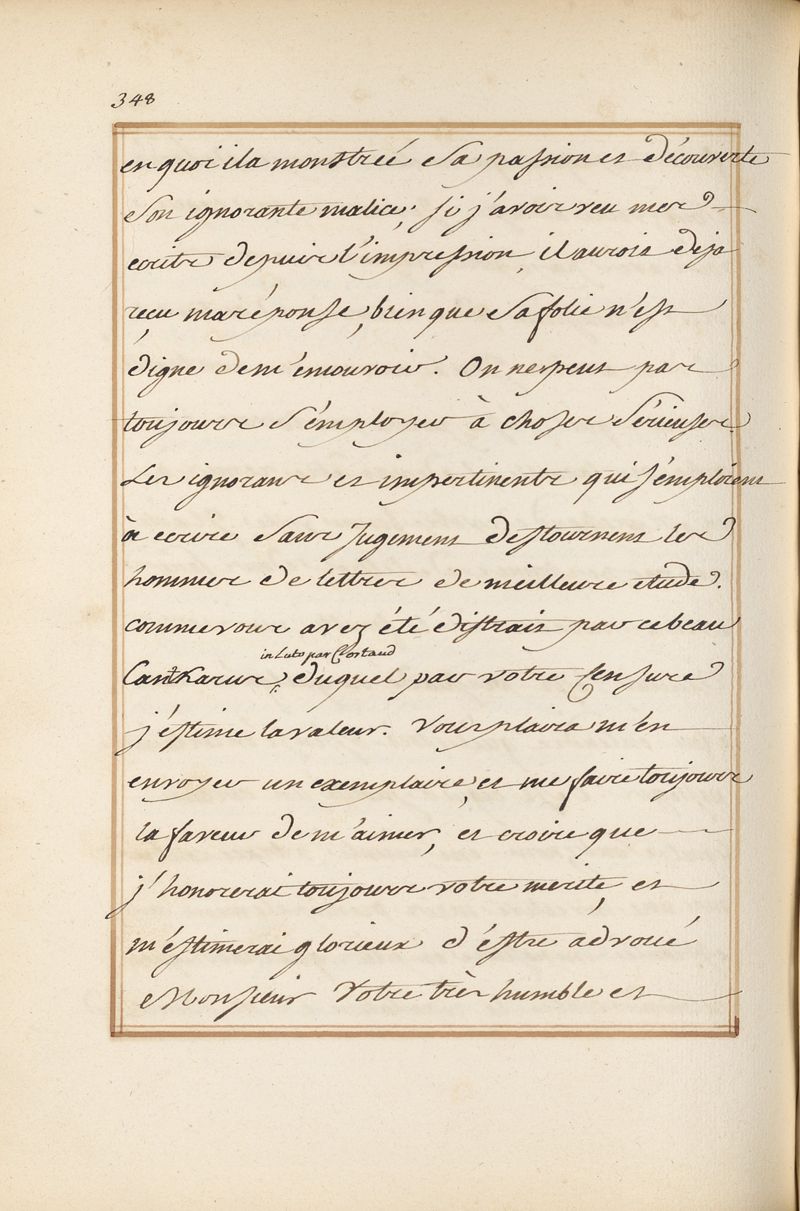 348
en quoi il a monstreé sa passion et découverte
son ignorante malice; si j'avois veu mes
ecrits depuis l'impression, il auroit deja
receu ma réponse, bien que sa folie n'est
digne de m'émouvoir. On ne peut pas
toujours s'employer à choses sérieuses.
Les ignorans et impertinents qui s'emploient
à ecrire sans jugement destournent les
hommes de lettres de meilleure etude.
comme vous avez été distrait par ce beau
in Luto par Cortaud
Cantharus, duquel par votre Censure
j'éstime la valeur. Vous plaira m'en
envoyer un exemplaire, et me faire toujours
la faveur de m'aimer, et croire que
j'honorerai toujours votre merite, et
m'éstimerai glorieux d'éstre advoué
Monsieur Votre très humble et